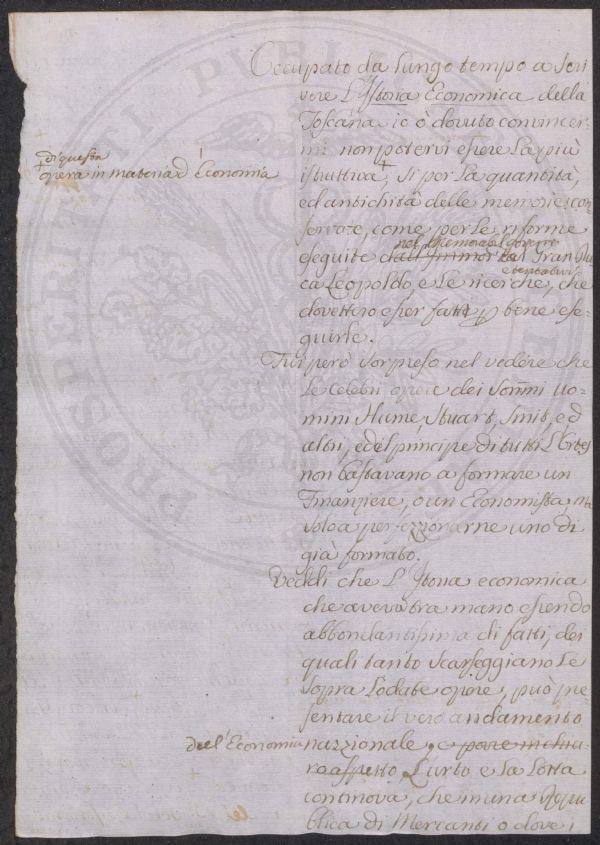 Occupato da lungo tempo a scri
vere L'Istoria Economica della
Toscana io ò dovuto convincer-
mi non potervi essere la più
di questa
+ opera in materia d'Economia
istruttiva +, si per la quantità,
ed antichità delle memorie con
servate, come per le riforme
nel memorabil governo
eseguite dall'Immortal Gran Du
ca Leopoldo, e Le ricerche, che
dovettero esser fatte p bene ese-
guirle.
Fui però sorpreso nel vedere che
Le celebri opere dei sommi uo-
mini Hume, Stuart, Smit, ed
altri, e del principe di tutti L'Ortes
non bastavano a formare un
Finanziere, o un Economista, ma
solo a perfezzionarne uno di
già formato.
Veddi che L'Istoria economica
che avevo tra mano essendo
abbondantissima di fatti, dei
quali tanto scarseggiano Le
sopra Lodate opere, può pre
sentare il vero andamento
dell'Economia nazzionale, e porre in chia
ro aspetto L'urto e la Lotta
continova, che in una Repu
blica di Mercanti o dove i
PROSPERITATI PUBLICAE